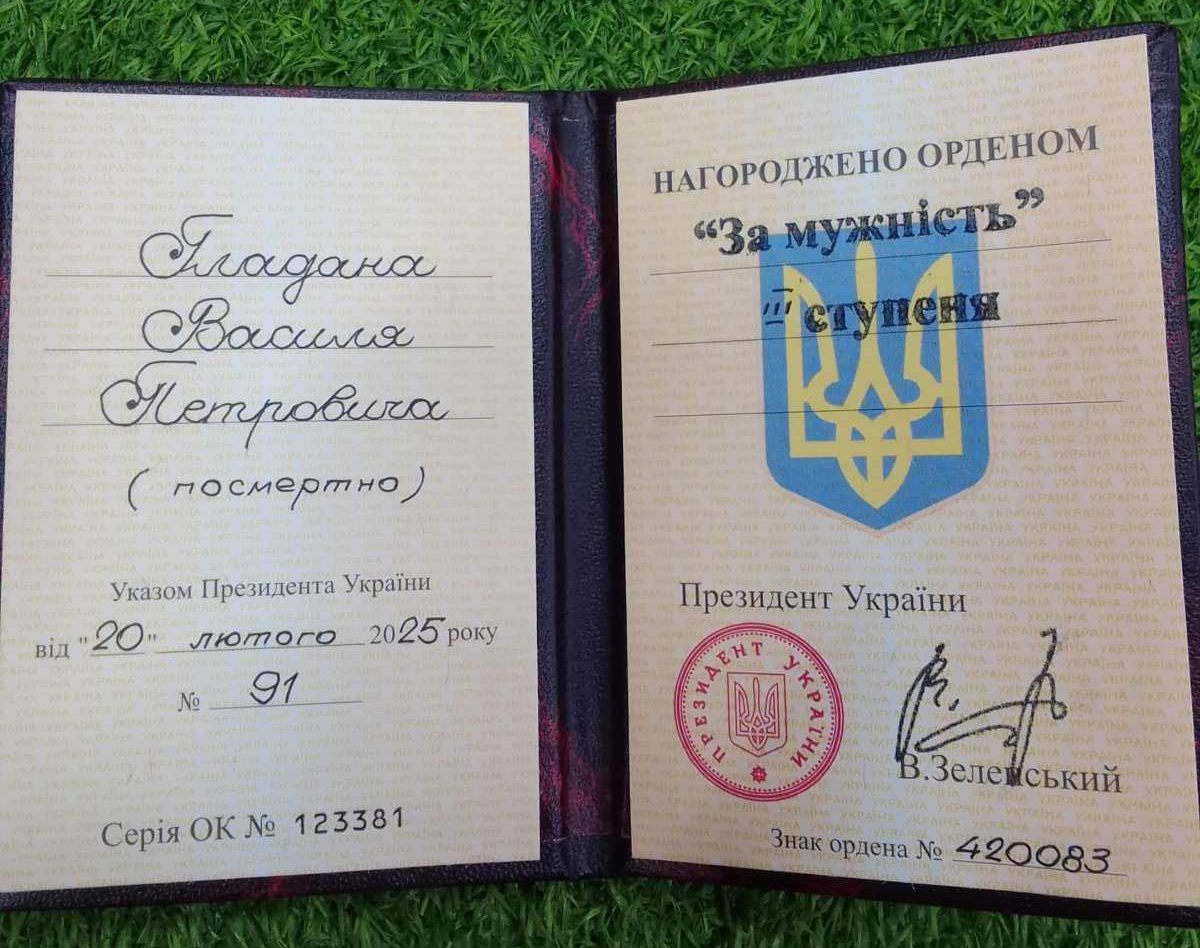 Гладана
Василя
Петровича
(посмертно)
Указом Президента України
від "20" лютого 2025 року
№ 91
Серія ОК № 123381
НАГОРОДЖЕНО ОРДЕНОМ
“За мужність”
III ступеня
Президент України
ПРЕЗИДЕНТ УКРАЇНИ
В.Зеленський
Знак ордена № 420083